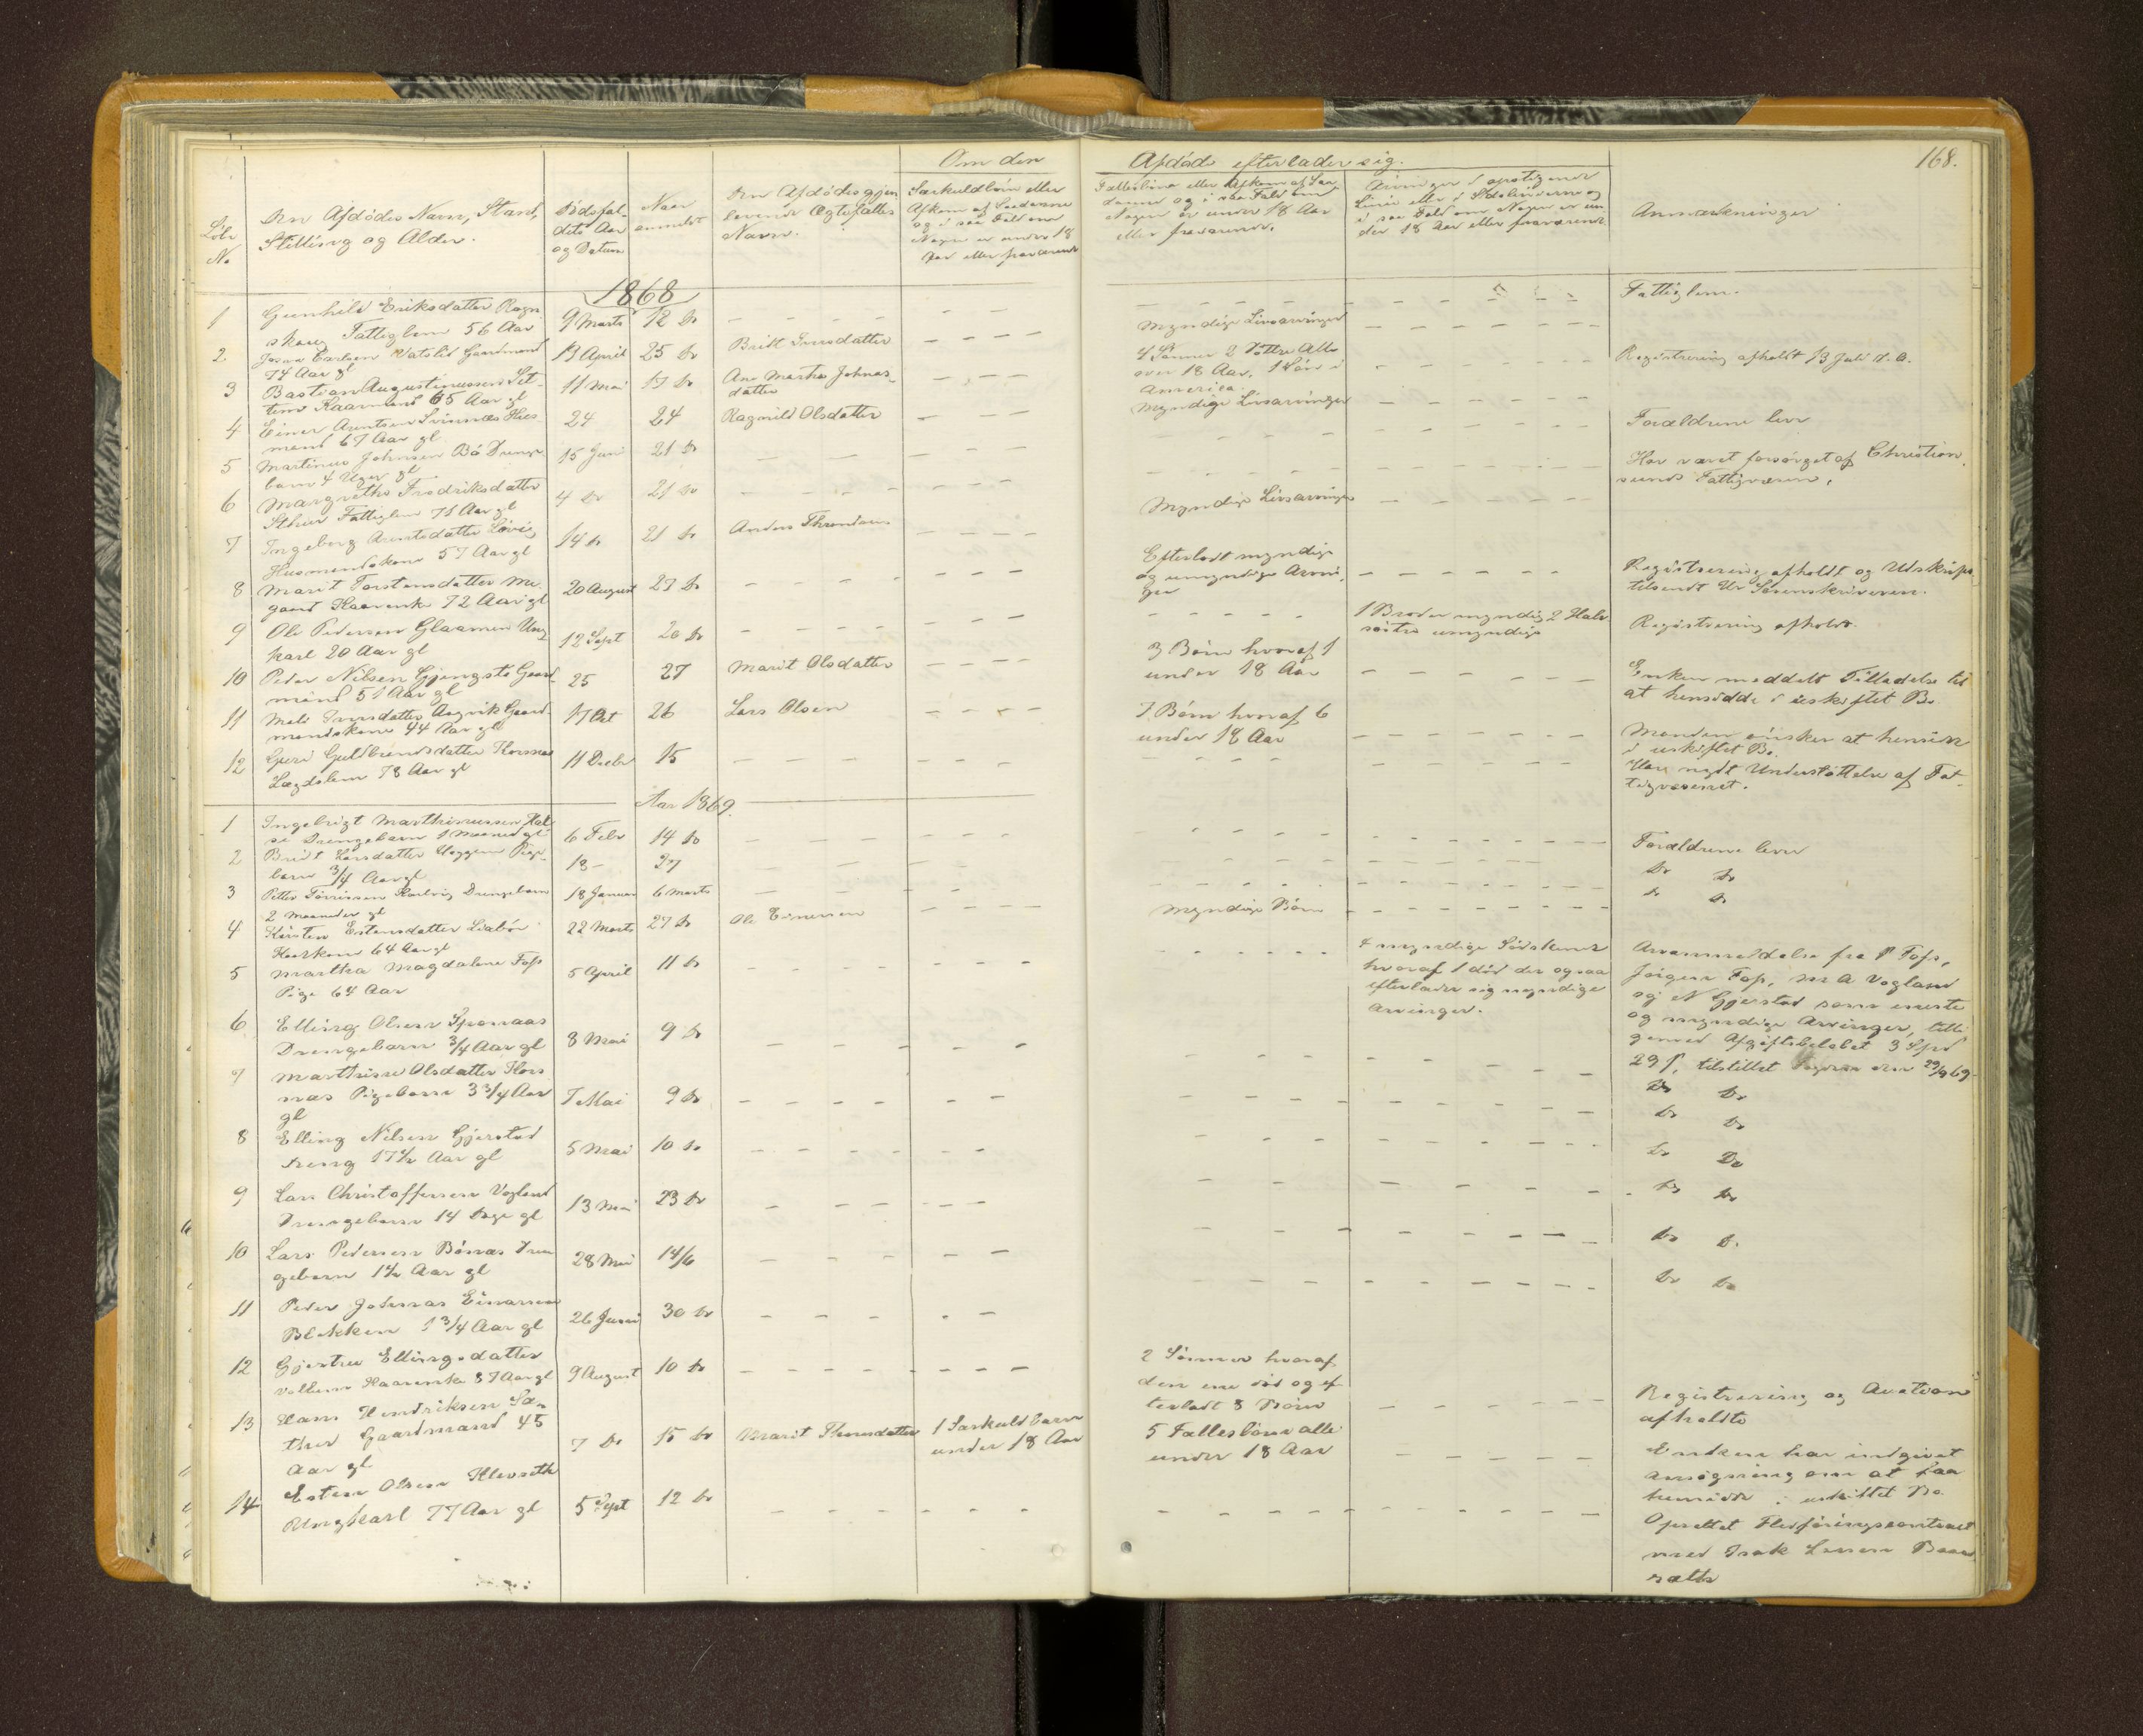 168.
Om den Afdöde efterlader sig.
Löbe No
Den Afdödes Navn, Stand, Stilling og Alder.
Dödsfaldets Aar og Datum
Naar anmeldt
Den Afdödes gjenlevende Ægtefælles Navn.
Særkuldbörn eller Afkom af Saadanne og i saa Fald om Nogen er under 18 Aar eller fraværende
Fællesbörn eller Afkom af Saadanne og i saa Fald om Nogen er under 18 Aar eller fraværende.
Arvinger i opstigende Linie eller i Sidelinierne og i saa Fald om Nogen er under 18 Aar eller fraværende
Anmærkninger
1868
1 Gunhild Eriksdatter Rognskoug Fattiglem 56 Aar 9 Marts 12 Do Fattiglem.
2 Carlsen Vatslid Gaardmand 74 Aar gl 13 April 25 Do Britt Iversdatter Myndige Livsarvinger
3 Bastian Augustinussen Settem Kaarmand 65 Aar gl 11 Mai 17 Do Ane Martha Johnasdatter 4 Sönner 2 Döttre Alle over 18 Aar, 1 Sön i America. Registrering afholdt 13 Juli d. A.
4 Einer Arentsen Svinnæs Husmand 67 Aar gl 24 24 Ragnild Olsdatter Myndige Livsarvinger
5 Martinus Johnsen Bö Drengebarn 4 Uger gl 15 Juni 21 Do Forældrene lever
6 Margrethe Fredriksdatter Fattiglem 71 Aar gl 4 Do 21 Do Har været forsörget af Christiansunds Fattigvæsen.
7 Ingeborg Arentsdatter Lövig Husmandskone 57 Aar gl 14 Do 21 Do Anders Throndsen Myndige Livsarvinger
8 Marit Torstensdatter Megaard Kaarenke 72 Aar gl 20 August 27 Do Efterladt myndige og umyndige Arvinger Registrering afholdt og Udskrift tilsendt Hr Sorenskriveren.
9 Ole Pedersen Glaamen Ungkarl 20 Aar gl 12 Sept 26 Do 1 Broder myndig 2 Halvsöstre umyndige Registrering afholdt.
10 Peder Nilsen Gjengstö Gaardmand 51 Aar gl 25 27 Marit Olsdatter 3 Börn hvoraf 1 under 18 Aar Enken meddelt Tilladelse til at hensidde i uskiftet Bo.
11 Mali Iversdatter Aagvik Gaardmandskone 44 Aar gl 17 Oct 26 Lars Olsen 7 Börn hvoraf 6 under 18 Aar Manden önsker at hensidde i uskiftet Bo.
12 Guri Guldbrandsdatter Korsnæs Lægdslem 78 Aar gl 11 Decbr 15 Har nydt Understöttelse af Fattigvæsenet.
Aar 1869.
1 Ingebrigt Marthinussen Halse Drengebarn 1 Maaned gl 6 Febr 14 Do Forældrene lever
2 Brit Larsdatter Pigebarn 3/4 Aar gl 13 – 27 Do Do
3 Petter Törrissen Drengebarn 2 Maaneder gl 18 Januar 6 Marts Do Do
4 Kirsten Estensdatter Liabö Kaarkone 64 Aar gl 22 Marts 27 Do Ole Einersen Myndige Börn
5 Martha Magdalene Foss Pige 64 Aar 5 April 11 Do 4 myndige Södskende hvoraf 1 död der ogsaa efterlader sig myndige Arvinger. Arveanmeldelse fra P Foss, Jörgen Foss, M A Vogland og N Gjerstad som eneste og myndige Arvinger, tilligemed Afgiftsbelöbet 3 Spd 29 ß, tilstillet Fogden den 29/9 69.
6 Elling Olsen Sponaas Drengebarn 3/4 Aar gl 8 Mai 9 Do Do Do
7 Marthine Olsdatter Korsnæs Pigebarn 3 3/4 Aar gl 7 Mai 9 Do Do Do
8 Elling Nilsen Gjerstad Dreng 17 1/2 Aar gl 5 Mai 10 Do Do Do
9 Lars Christoffersen Vogland Drengebarn 14 Dage gl 13 Mai 23 Do Do Do
10 Lars Pedersen Bönæs Drengebarn 1 1/2 Aar gl 28 Mai 14/6 Do Do
11 Peder Johnas Einarsen Blekken 1 3/4 Aar gl 26 Juni 30 Do Do Do
12 Gjertru Ellingsdatter Vullum Kaarenke 87 Aar gl 9 August 10 Do 2 Sönner hvoraf den ene död og efterladt 8 Börn Registrering og Auction afholdte
13 Hans Hendriksen Sæther Gaardmand 45 Aar gl 7 Do 15 Do Marit Iversdatter 1 Særkuldbarn under 18 Aar 5 Fællesbörn alle under 18 Aar Enken har indgivet Ansögning om at faa hensidde i uskiftet Bo.
14 Esten Olsen Klevseth Ungkarl 77 Aar gl 5 Sept 12 Do Oprettet Flodföringscontract med Isak Larsen